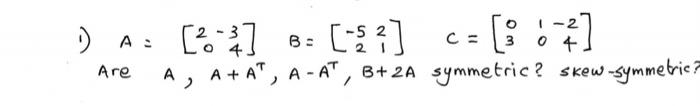 1) A = [2 -3; 0 4] B = [-5 2; 2 1] C = [0 1 -2; 3 0 4]
Are A, A + Aᵀ, A - Aᵀ, B + 2A symmetric? skew-symmetric?